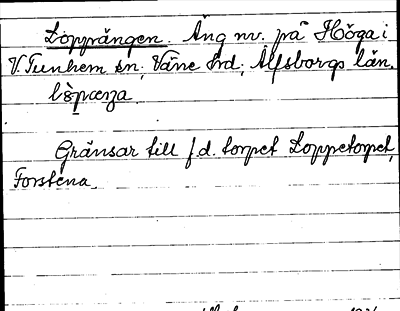 Lopprängen. Äng nv. på Höga i
V. Tunhem sn, Väne hrd, Älfsborgs län.
lòpæŋa.
Gränsar till f.d. torpet Loppetorpet,
Forstena.